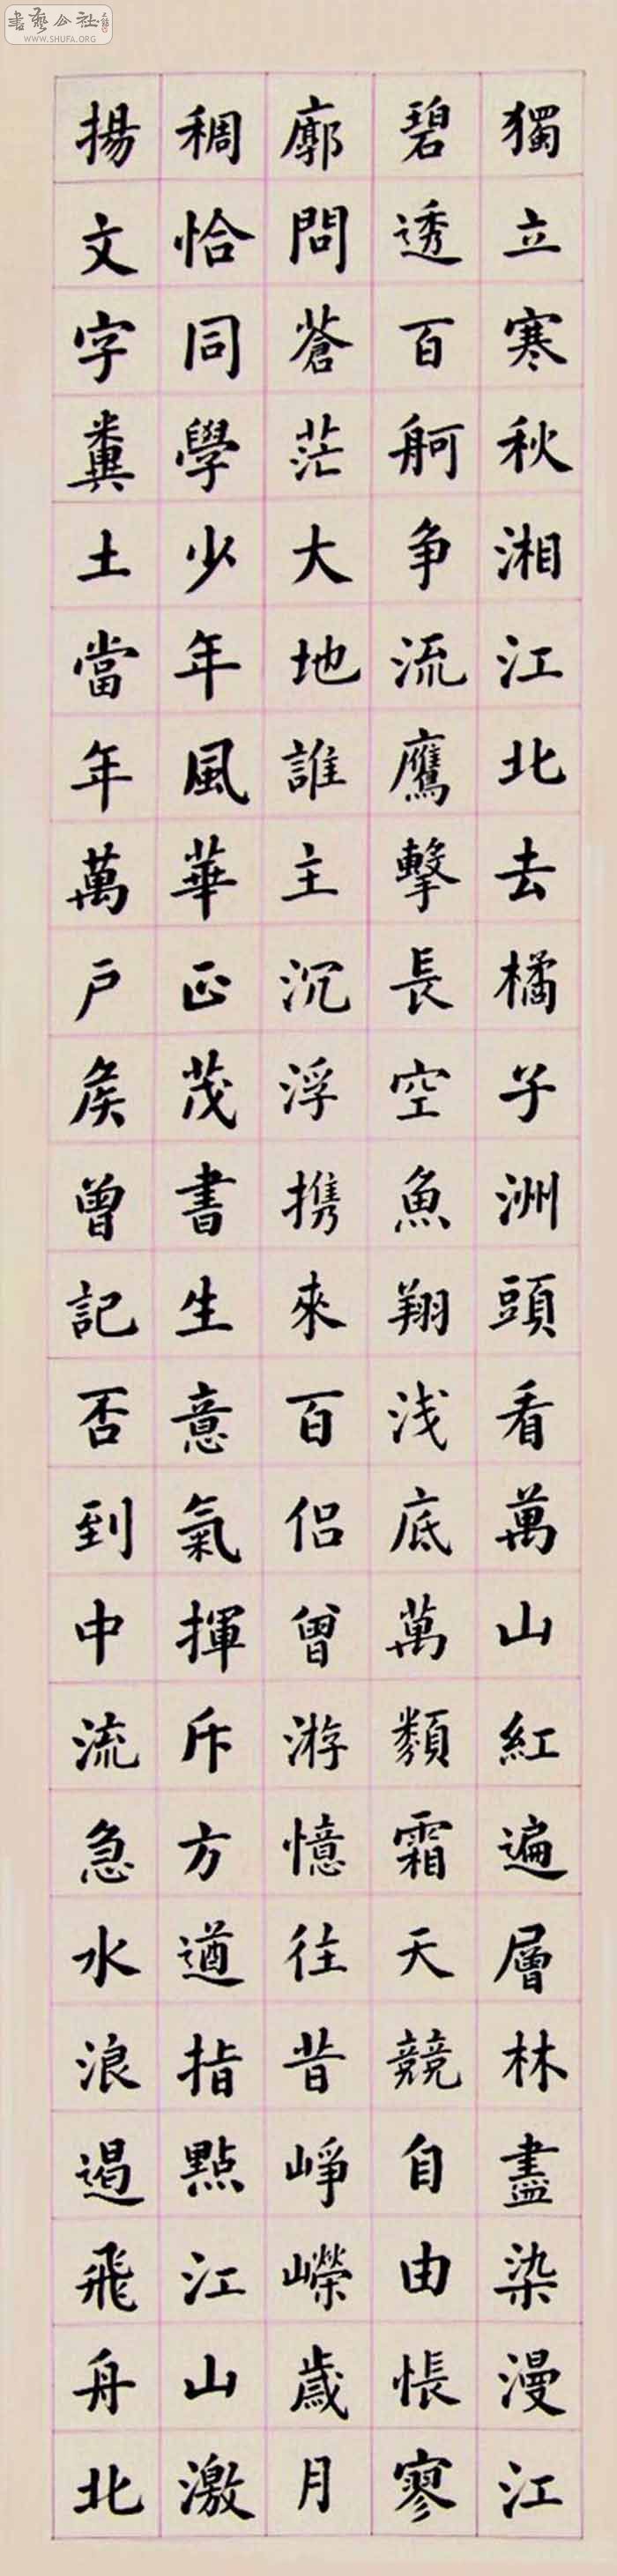 書藝公社
WWW.SHUFA.ORG
獨立寒秋湘江北去橘子洲頭看萬山紅遍層林盡染漫江
碧透百舸争流鷹擊長空魚翔浅底萬類霜天競自由悵寥
廓問蒼茫大地誰主沉浮携來百侣曾游憶往昔崢嶸歲月
稠恰同學少年風華正茂書生意氣揮斥方遒指點江山激
揚文字糞土當年萬户矦曾記否到中流急水浪遏飛舟北